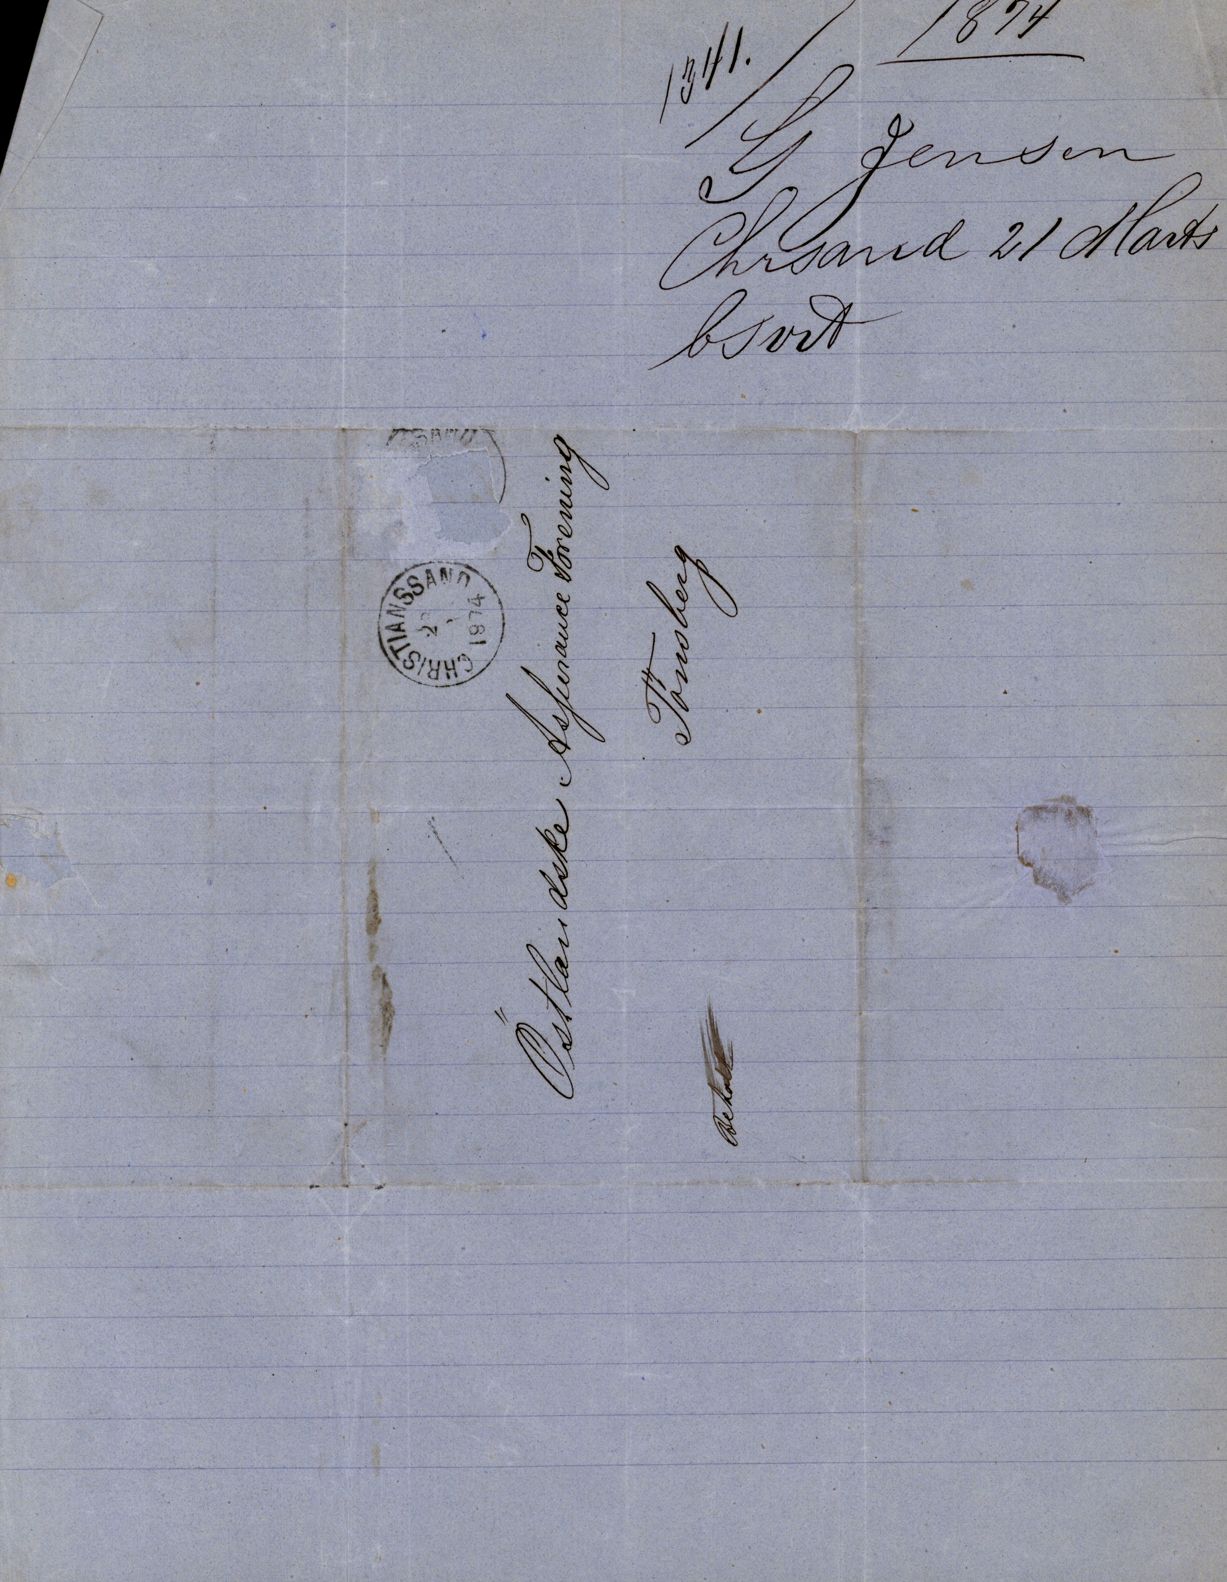 1341.
1874
G Jensen
Chrsand 21 Marts
bsvrt
CHRISTIANSSAND
1874
Östlandske Assurance Forening
Tönsberg